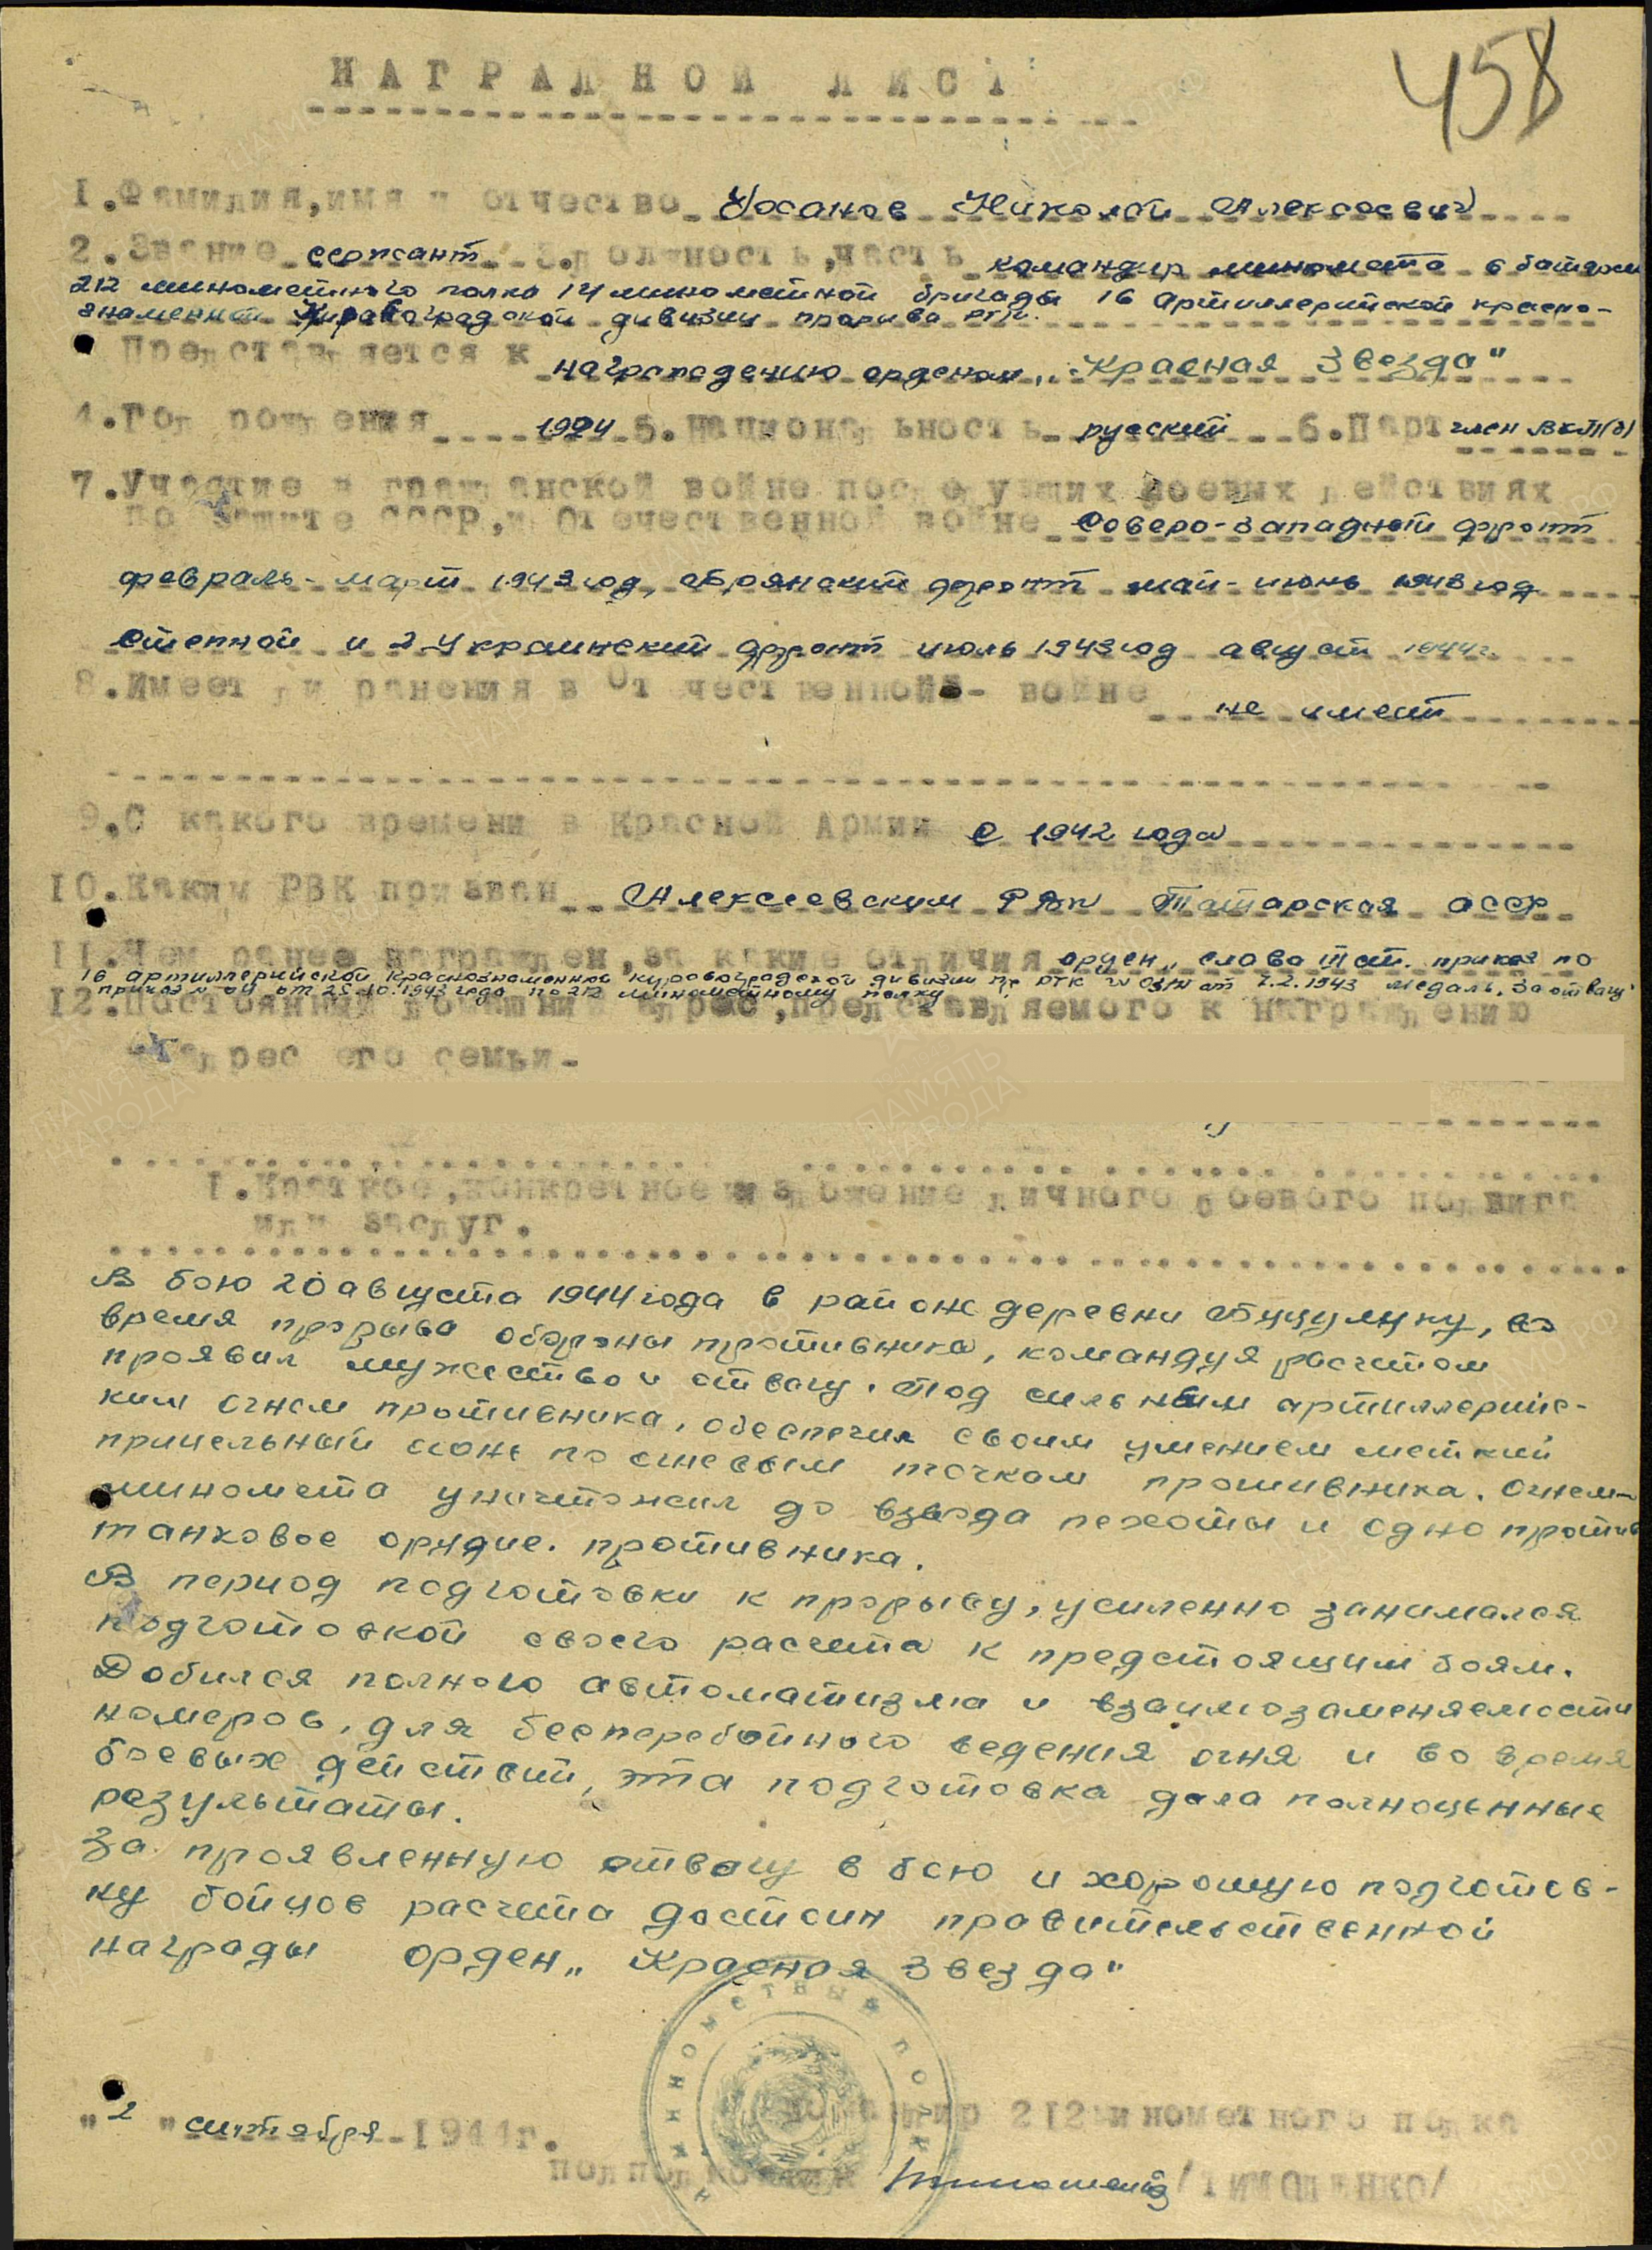 458
НАГРАДНОЙ ЛИСТ
1.Фамилия,имя и отчество Усанов Николай Алексеевич
2.Звание сержант 3.Должность,часть командир миномета 6 батареи
212 минометного полка 14 минометной бригады 16 артиллерийской красно-
знаменной Кировоградской дивизии прорыва РГК.
Представляется к награждению орденом „Красная Звезда"
4.Год рождения 1924 5.Национальность русский 6.Парт член ВКП(б)
7.Участие в гражданской войне последующих боевых действиях
по защите СССР,и Отечественной войне Северо-Западный фронт
февраль-март 1943 год, Брянский фронт май-июнь 1943 год
Степной и 2 Украинский фронт июль 1943 год август 1944г.
8.Имеет ли ранения в Отечественной- войне не имеет
9.С какого времени в Красной Армии с 1942 года
10.Каким РВК призван Алексеевским РВК Татарская АССР
11.Чем ранее награжден,за какие отличия орден „Слава III ст. приказ по
16 артиллерийской краснознаменной Кировоградской дивизии пр РГК от 7.2.1943 медаль „За отвагу"
приказ от 25.10.1943 года по 212 минометному полку
12.Постоянный домашний адрес,представляемого к награждению
и адрес его семьи-
1.Краткое,конкретное изложение личного боевого подвига
или заслуг.
В бою 20 августа 1944 года в районе деревни Буцулуку, во
время прорыва обороны противника, командуя расчетом
проявил мужество и отвагу. Под сильным артиллерийс-
ким огнем противника, обеспечил своим умением меткий
прицельный огонь по огневым точкам противника. Огнем
миномета уничтожил до взвода пехоты и одно против
танковое орудие. противника.
В период подготовки к прорыву, усиленно занимался
подготовкой своего расчета к предстоящим боям.
Добился полного автоматизма и взаимозаменяемости
номеров, для бесперебойного ведения огня и во время
боевых действий, эта подготовка дала полноценные
результаты.
За проявленную отвагу в бою и хорошую подготов-
ку бойцов расчета достоин правительственной
награды орден „Красная Звезда"
МИНОМЕТНЫЙ ПОЛК
командир 212 минометного полка
"2" сентября 1944г.
подполковник /ТИМОШЕНКО/
ПАМЯТЬ НАРОДА
ПАМЯТЬ НАРОДА